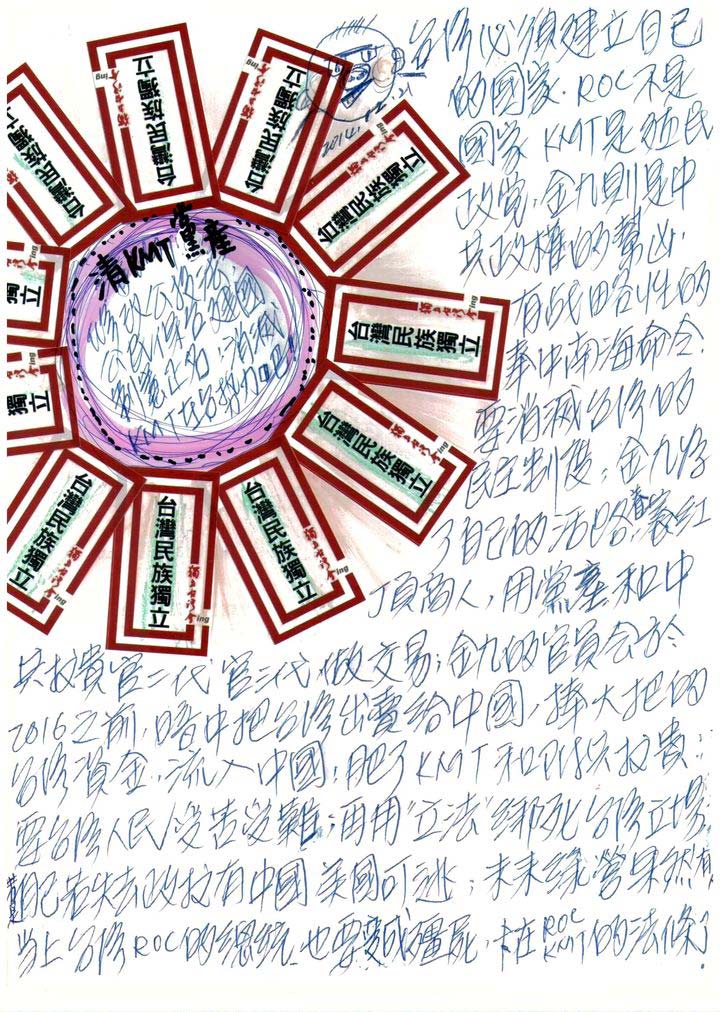 2014.
台灣必須建立自己
的國家．ROC不是
國家 KMT是殖民
政党，金九則是中
共政權的幫凶．
有战略性的
奉中南海命令．
要消滅台灣的
民主制度；金九為
了自己的活路，養紅
頂商人，用黨產和中
共权貴官二代官三代做交易；金九的官員会於
2016之前，暗中把台灣出賣給中國，捧大把的
台灣資金，流入中國，肥了KMT和附共权貴；
要台灣人民受苦受難；再用"立法"綁死台灣立場
自己若失去政权有中國美國可逃；未來綠營果然有人
当上台灣ROC的總統也要變成殭屍，卡在ROC KMT的法條了．
清KMT黨產
修改公投法
公民保台建國
制憲正名，消滅
KMT在台勢力吧!
台灣民族獨立
ing
台灣民族獨立
ing
台灣民族獨立
台灣民族獨立
ing
台灣民族獨立
ing
台灣民族獨立
ing
台灣民族獨立
ing
台灣民族獨立
ing
台灣民族獨立
獨立
ing
獨立
ing